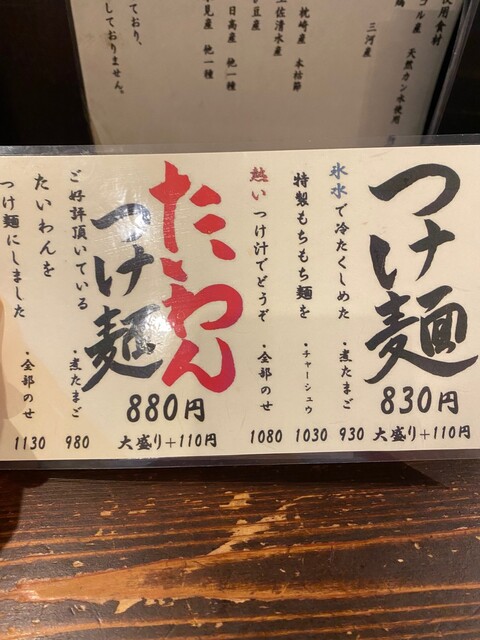 使用食材
天然カン水使用
三河産
枕崎産 本枯節
土佐清水産
日高産 他一種
他一種
ており、
しておりません。
つけ麺
830円
大盛り+110円
氷水で冷たくしめた
・煮たまご
930
特製もちもち麺を
・チャーシュウ
1030
熱いつけ汁でどうぞ
・全部のせ
1080
たいわん
つけ麺
880円
大盛り+110円
ご好評頂いている
・煮たまご
980
たいわんを
つけ麺にしました
・全部のせ
1130